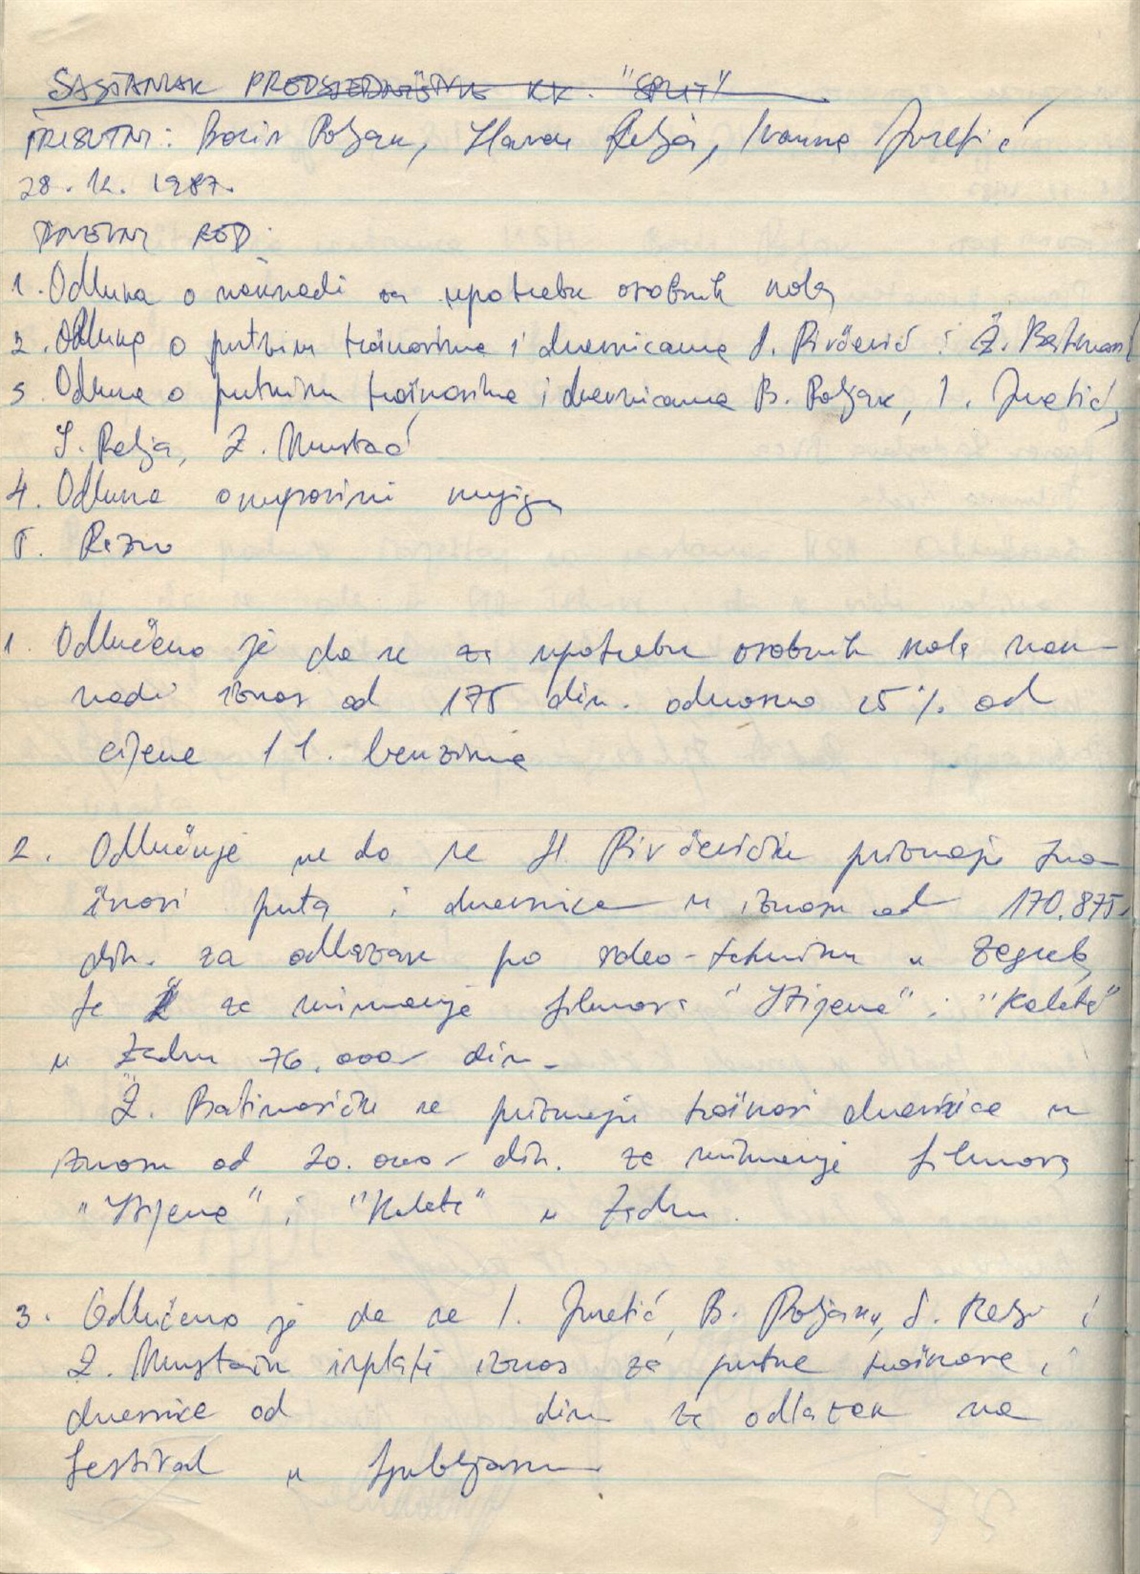 SASTANAK PREDSJEDNIŠTVA KK. "SPLIT"
PRISUTNI: Boris Poljak, Slaven Relja, Ivanna Juretić
28. 12. 1987.
DNEVNI RED:
1. Odluka o naknadi za upotrebu osobnih kola
2. Odluka o putnim troškovima i dnevnicama S. Pivčević i Ž. Batinović
3. Odluka o putnim troškovima i dnevnicama B. Poljak, I. Juretić,
S. Relja, Z. Mustać
4. Odluka o kupovini knjiga
5. Razno
1. Odlučeno je da se za upotrebu osobnih kola nak-
nadi iznos od 175 din. odnosno 25% od
cijene 1 l. benzina
2. Odlučuje se da se S. Pivčeviću priznaju tro-
škovi puta i dnevnice u iznosu od 170.875.
din. za odlazak po video-tehniku u Zagreb,
te za snimanje filmova "Stijena" i "Kaleta"
u Zadru 76.000 din.
Ž. Batinoviću se priznaju troškovi dnevnice u
iznosu od 20.000 din. za snimanje filmova
"Stijena" i "Kaleta" u Zadru.
3. Odlučeno je da se I. Juretić, B. Poljaku, S. Relji i
Z. Mustaću isplati iznos za putne troškove i
dnevnice od din za odlazak na
festival u Ljubljanu.